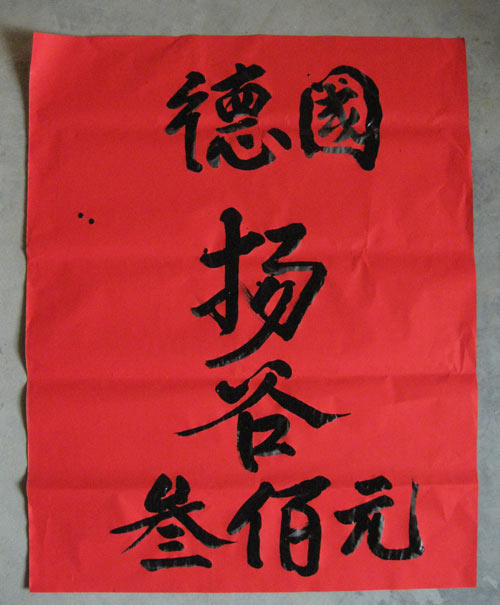 德國
扬
谷
叁佰元